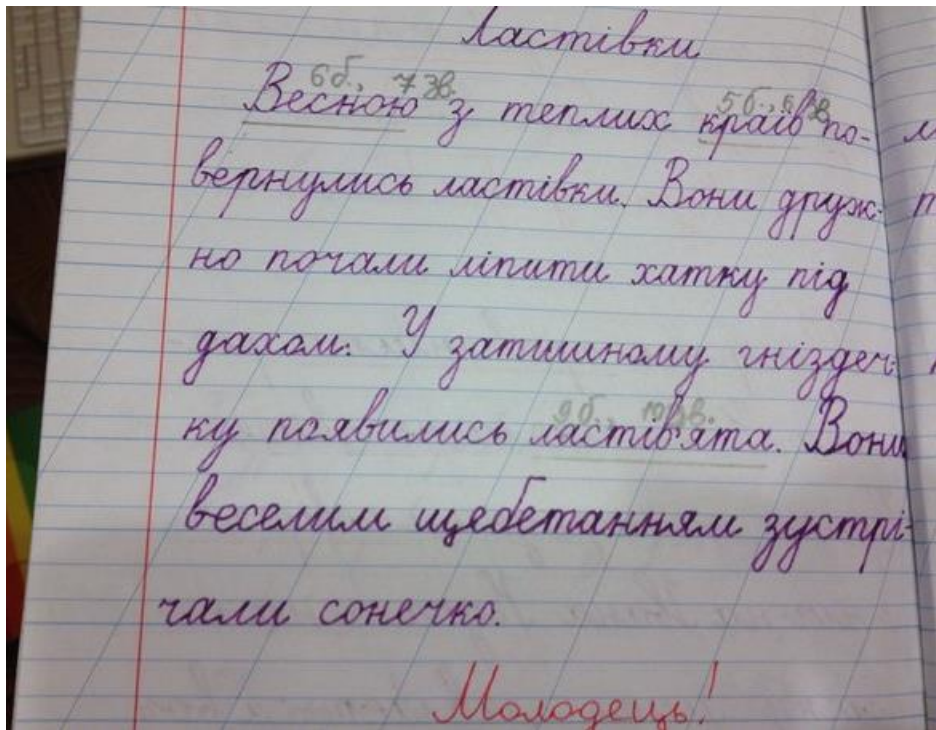 Ластівки
6 б., 7 зв. 5 б., 6 зв.
Весною з теплих країв по-
вернулись ластівки. Вони друж-
но почали ліпити хатку під
дахом. У затишному гніздеч-
9 б., 10 зв.
ку появились ластів'ята. Вони
веселим щебетанням зустрі-
чали сонечко.
Молодець!